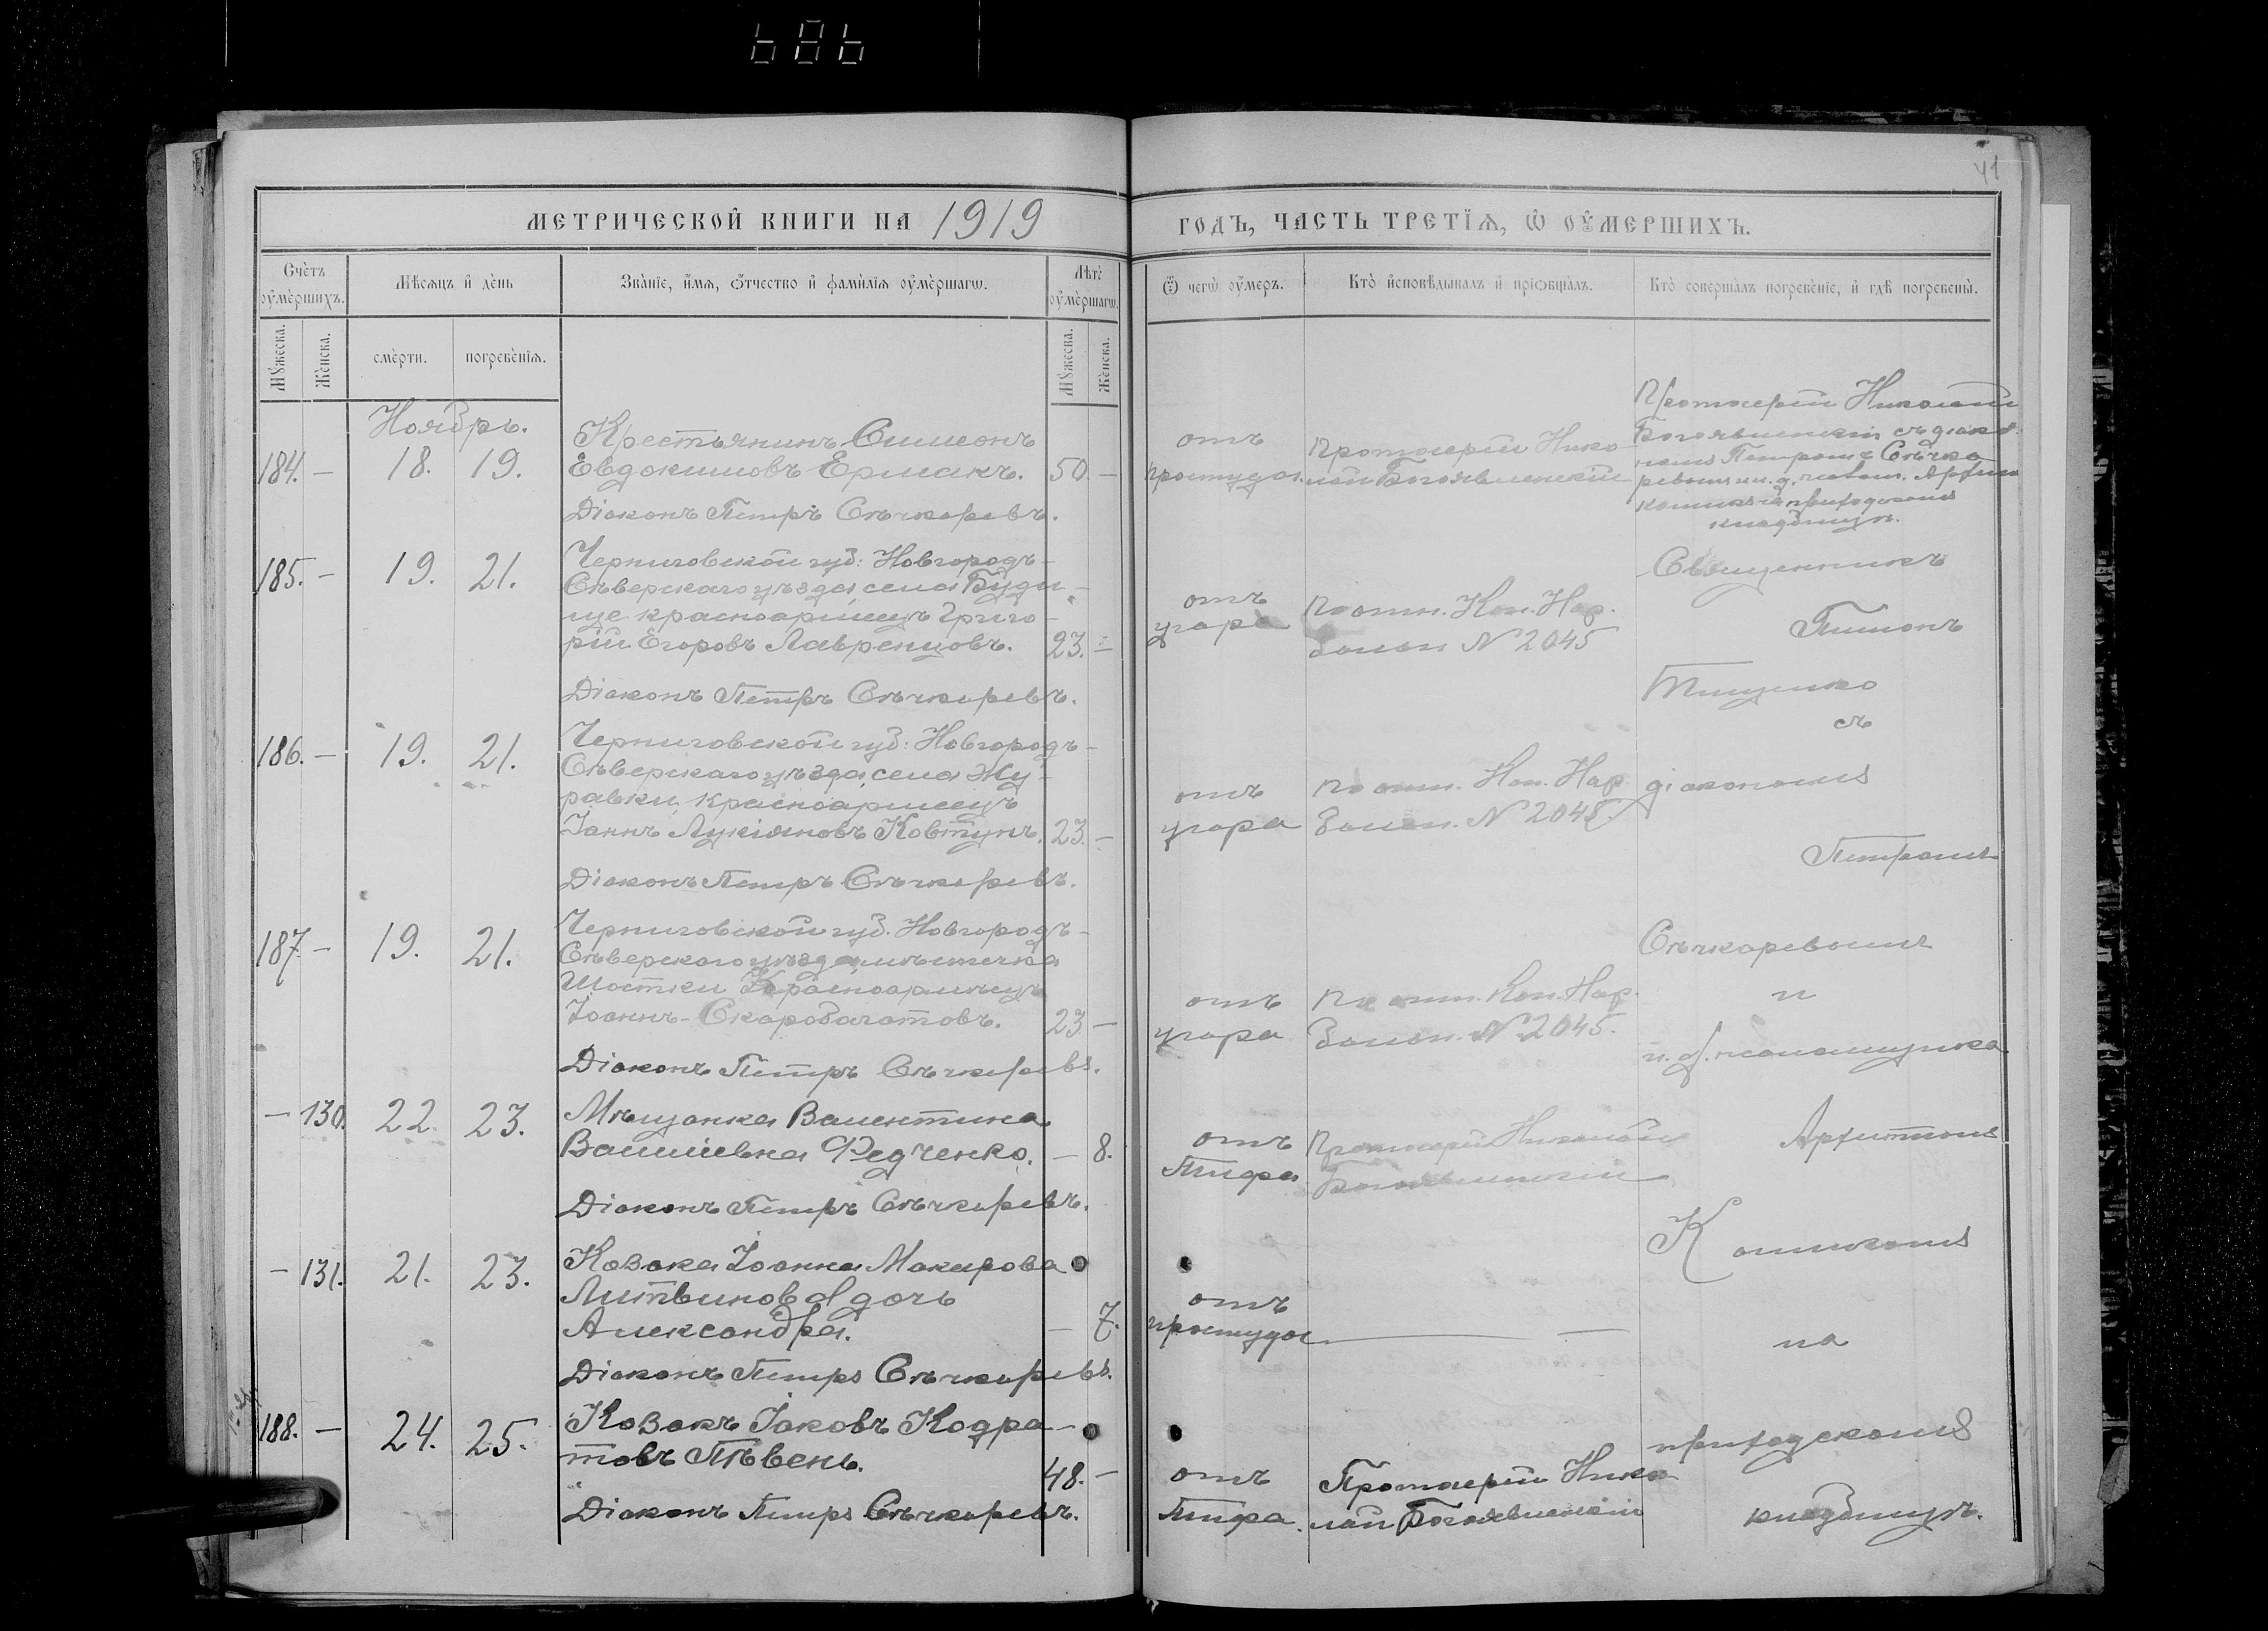 686
41
МЕТРИЧЕСКОЙ КНИГИ НА 1919 ГОДЪ, ЧАСТЬ ТРЕТІѦ, Ѽ ОУМЕРШИХЪ.
Счетъ оумершихъ.
Мѣсяцъ и день
Званіе, имя, отчество и фамилія оумершагѡ.
Лѣта оумершагѡ.
Ѿ чегѡ оумеръ.
Кто исповѣдывалъ и пріобщалъ.
Кто совершалъ погребеніе, и гдѣ погребены.
Мужеска.
Женска.
смерти.
погребенія.
Мужеска.
Женска.
Ноябрь.
184. — 18. 19.
Крестьянинъ Симеонъ
Евдокимовъ Ермакъ. 50. —
Діаконъ Петръ Сѣчкаревъ.
отъ
простуды.
Протоіерей Нико-
лай Богоявленскій
Протоіерей Николай
Богоявленскій съ діако-
номъ Петромъ Сѣчка
ревымъ и. д. псалом.
приходскомъ
кладбищѣ.
185. — 19. 21.
Черниговской губ: Новгородъ-
Сѣверскаго уѣзда села Буди-
ще красноармеецъ Григо-
рій Егоровъ Лавренцовъ. 23. —
Діаконъ Петръ Сѣчкаревъ.
отъ
угара
По отн. Кон. Нар.
Золот. № 2045
Священникъ
Пименъ
Тищенко
съ
186. — 19. 21.
Черниговской губ: Новгородъ-
Сѣверскаго уѣзда, села Жу-
равки, красноармеецъ
Іаннъ Лукіяновъ Ковтунъ. 23. —
Діаконъ Петръ Сѣчкаревъ.
отъ
угара
По отн. Кон. Нар
Золот. № 2045.
діакономъ
Петромъ
187 — 19. 21.
Черниговской губ. Новгородъ-
Сѣверскаго уѣзда, мѣстечка
Шостки Красноармеецъ
Іоаннъ Скаробагатовъ. 23 —
Діаконъ Петръ Сѣчкаревъ.
отъ
угара
По отн. Кон. Нар.
Золот. № 2045.
Сѣчкаревымъ
и
и. д. псаломщика
— 130. 22. 23.
Мѣщанка Валентина
Василіевна Федченко. — 8.
Діаконъ Петръ Сѣчкаревъ.
отъ
тифа
Протоіерей Николай
Богоявленскій
— 131. 21. 23.
Козака Іоанна Макарова
Литвинова дочь
Александра. — 7.
Діаконъ Петръ Сѣчкаревъ.
отъ
простуды
на
188. — 24. 25.
Козакъ Іаковъ Кодра-
товъ Пѣвень. 48. —
Діаконъ Петръ Сѣчкаревъ.
отъ
тифа.
Протоіерей Нико-
лай Богоявленскій
приходскомъ
кладбищѣ.